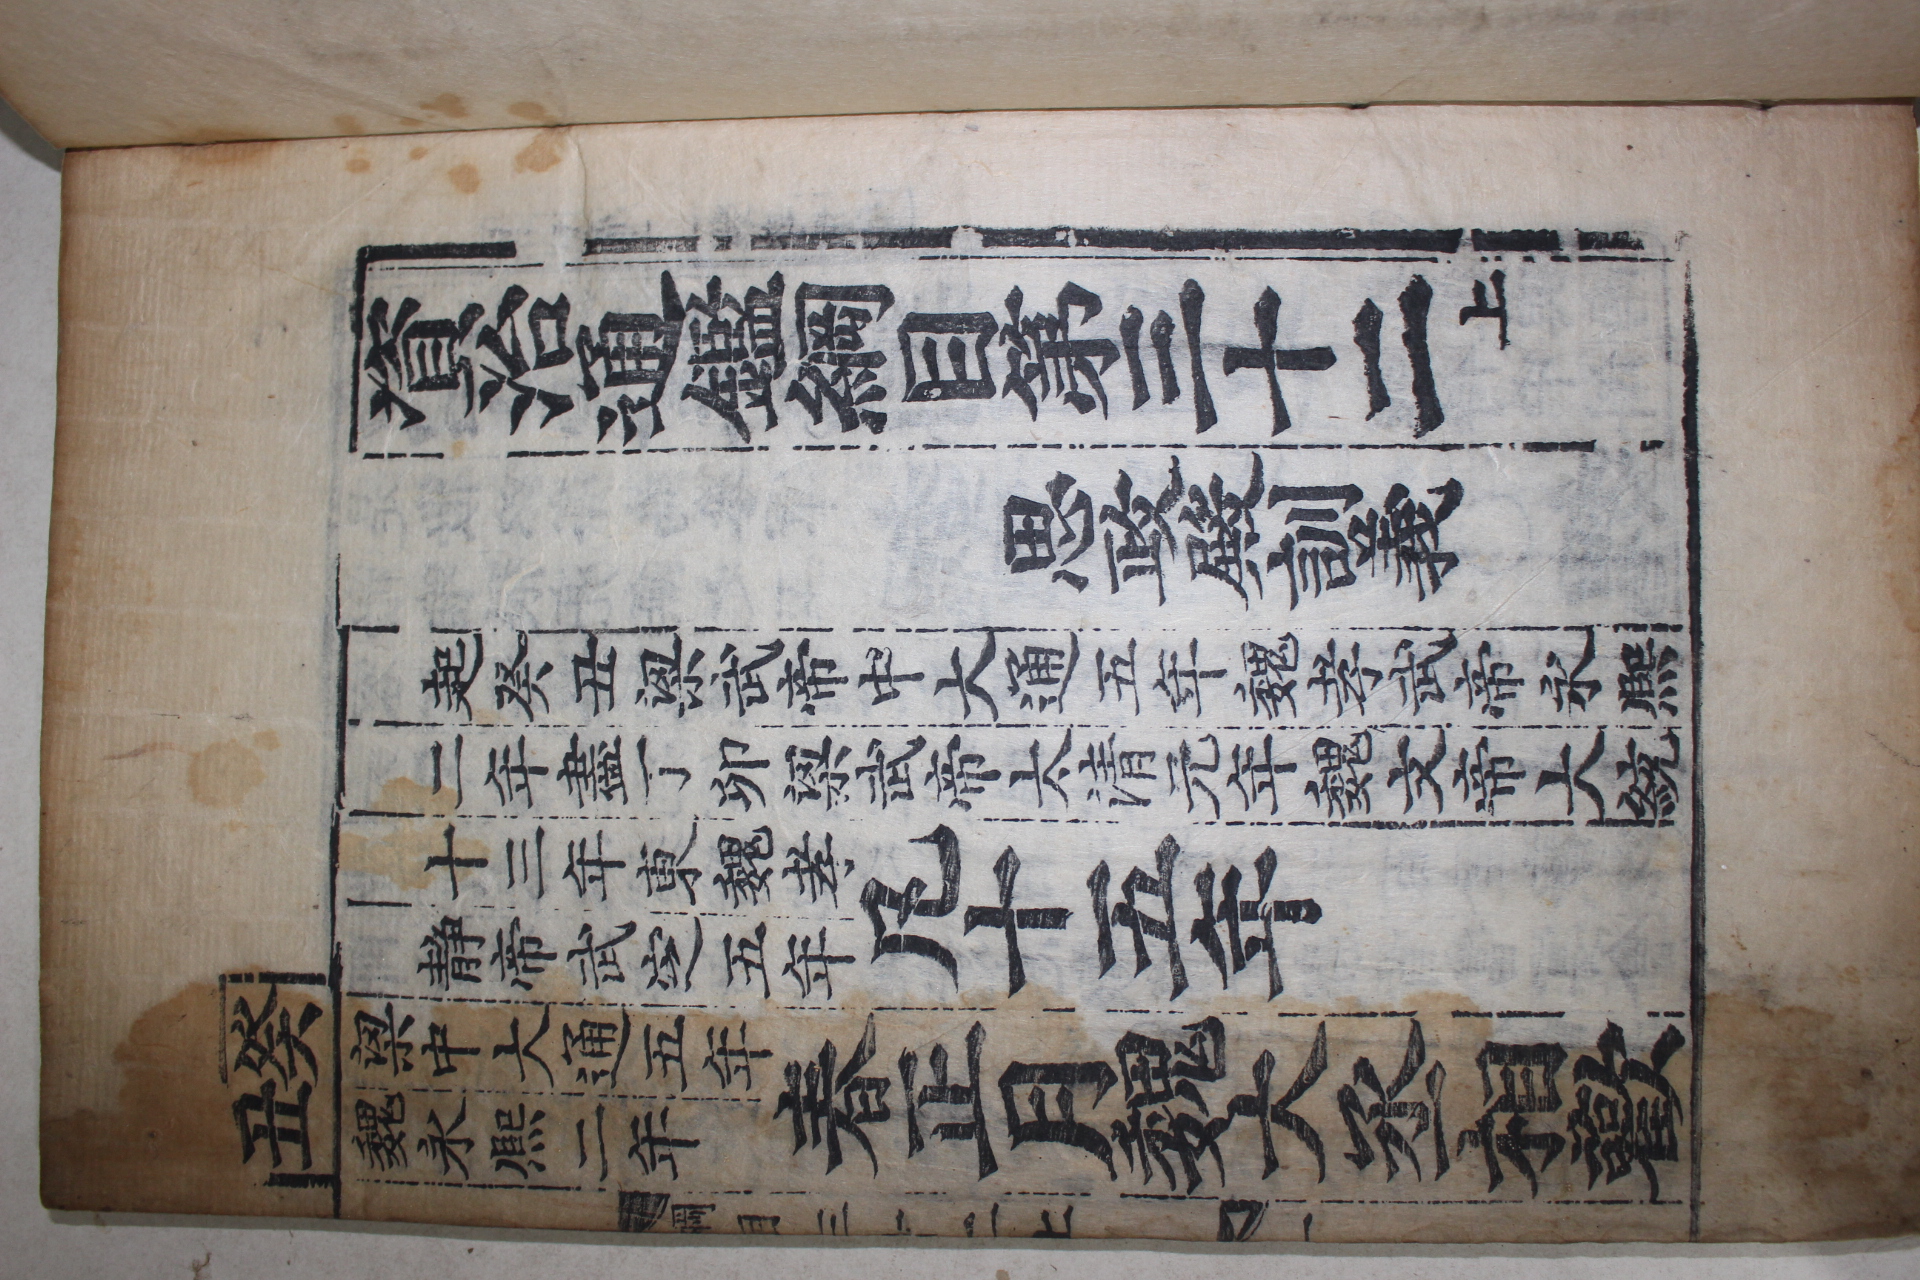 資治通鑑綱目第三十二上
思政殿訓義
起癸丑梁武帝中大通五年魏孝武帝永熙
二年盡丁卯梁武帝太清元年魏文帝大統
十三年東魏孝
靜帝武定五年
凡十五年
癸丑
梁中大通五年
魏永熙二年
春正月魏大丞相歡
綱目三十二上
一